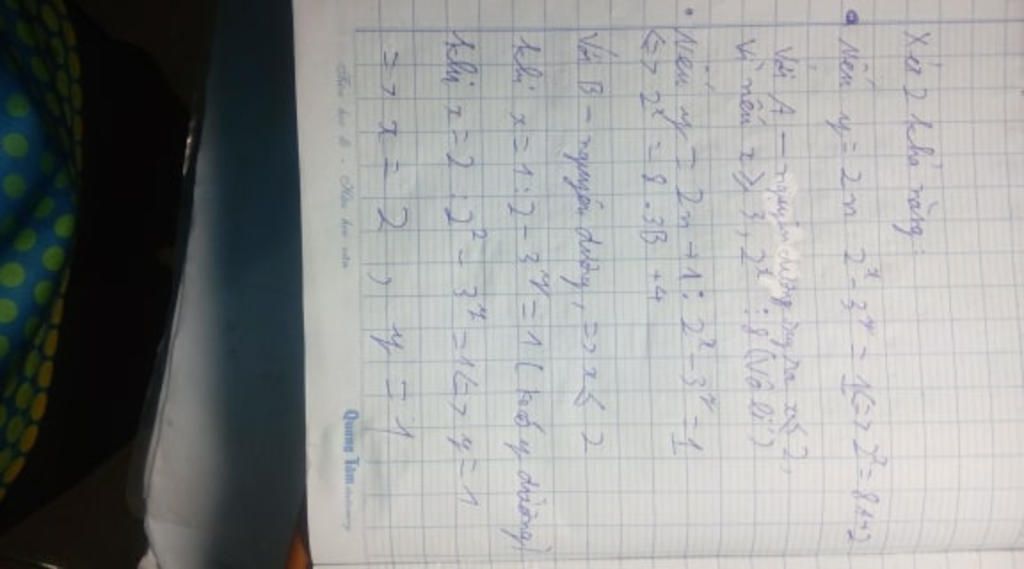 Xét 2 khả năng:
Nếu y = 2n 2^x - 3^y = 1 <=> 2^x = 8A+2
Với A - nguyên dương suy ra x ≤ 2,
vì nếu x ≥ 3, 2^x ⋮ 8 (vô lí)
Nếu y = 2n + 1: 2^x - 3^y = 1
<=> 2^x = 8.3B + 4
Với B - nguyên dương, => x ≤ 2
khi x = 1: 2 - 3^y = 1 ( y dương)
khi x = 2: 2^2 - 3^y = 1 <=> y = 1
=> x = 2, y = 1
Quang Tâm